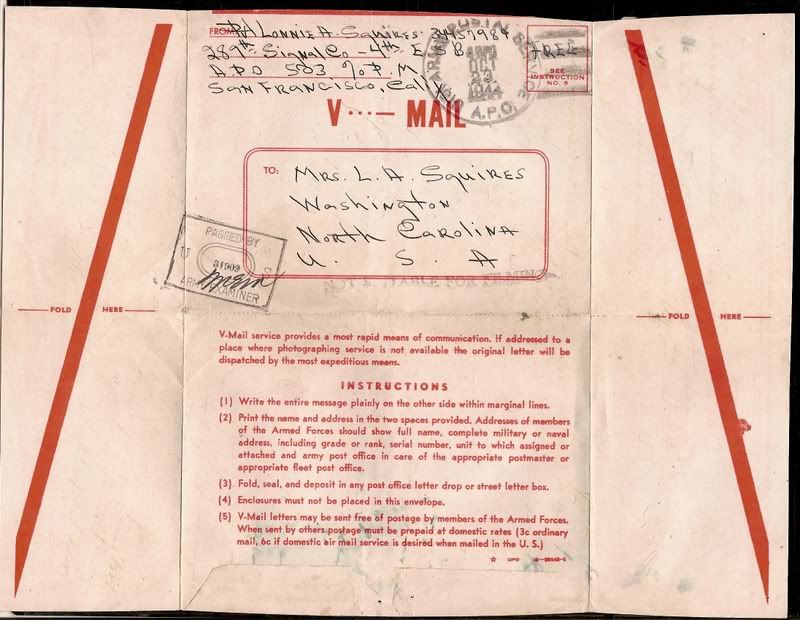 FROM Lonnie A. Squires 34457984
289th Signal Co - 4th E B
A.P.O 503 % P.M.
San Francisco, Calif
ARMY & U.S. IN
OCT
23
1944
A.P.O.
FREE
SEE
INSTRUCTION
NO. 5
V···— MAIL
TO: Mrs. L. A. Squires
Washington
North Carolina
U. S. A
PASSED BY
U S
31909
ARMY EXAMINER
NOT SUITABLE FOR FILMING
FOLD HERE
FOLD HERE
V-Mail service provides a most rapid means of communication. If addressed to a
place where photographing service is not available the original letter will be
dispatched by the most expeditious means.
INSTRUCTIONS
(1) Write the entire message plainly on the other side within marginal lines.
(2) Print the name and address in the two spaces provided. Addresses of members
of the Armed Forces should show full name, complete military or naval
address, including grade or rank, serial number, unit to which assigned or
attached and army post office in care of the appropriate postmaster or
appropriate fleet post office.
(3) Fold, seal, and deposit in any post office letter drop or street letter box.
(4) Enclosures must not be placed in this envelope.
(5) V-Mail letters may be sent free of postage by members of the Armed Forces.
When sent by others postage must be prepaid at domestic rates (3c ordinary
mail, 6c if domestic air mail service is desired when mailed in the U. S.)
☆ GPO